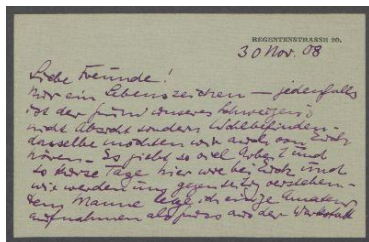 REGENTENSTRASSE 20.
30 Nov. 08
Liebe Freunde!
Nur ein Lebenszeichen – jedenfalls
ist der Grund unseres Schweigens
nicht Absicht sondern Wohlbefinden –
dasselbe möchten wir auch von Euch
hören – Es giebt so viel Arbeit und
so kurze Tage hier wie bei Euch und
wir werden uns gegenseitig verstehen –
Dem Manne lege ich einige Amateur
aufnahmen als aus der Werkstatt